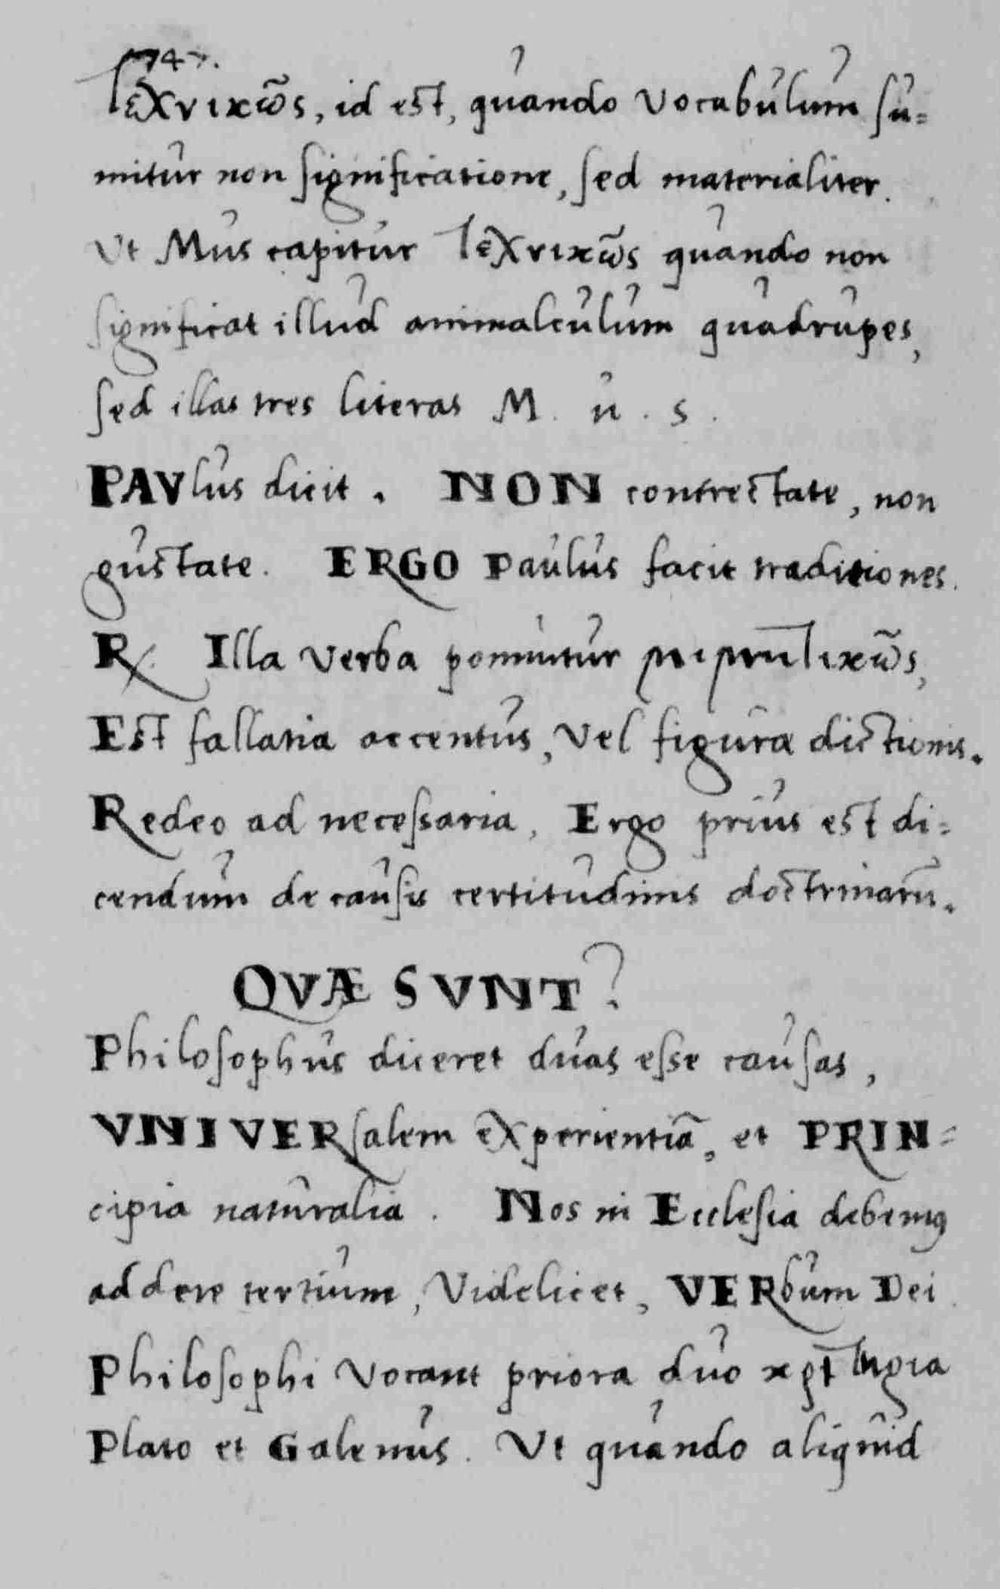 747.
τεχνικῶς, id est, quando vocabulum su=
mitur non significatione, sed materialiter.
Ut Mus capitur τεχνικῶς quando non
significat illud animalculum quadrupes,
sed illas tres literas M. u. s.
PAVlus dicit. NON contrectate, non
gustate. ERGO Paulus facit traditiones.
R/. Illa verba ponuntur μιμητικῶς,
Est fallatia accentus, vel figura dictionis.
Redeo ad necessaria, Ergo prius est di=
cendum de causis certitudinis doctrinarū.
QVÆ SVNT?
Philosophus diceret duas esse causas,
VNIVERsalem experientiā, et PRIN=
cipia naturalia. Nos in Ecclesia debemus
addere tertium, Videlicet, VERbum Dei
Philosophi vocant priora duo κριτήρια
Plato et Galenus. Ut quando aliquid